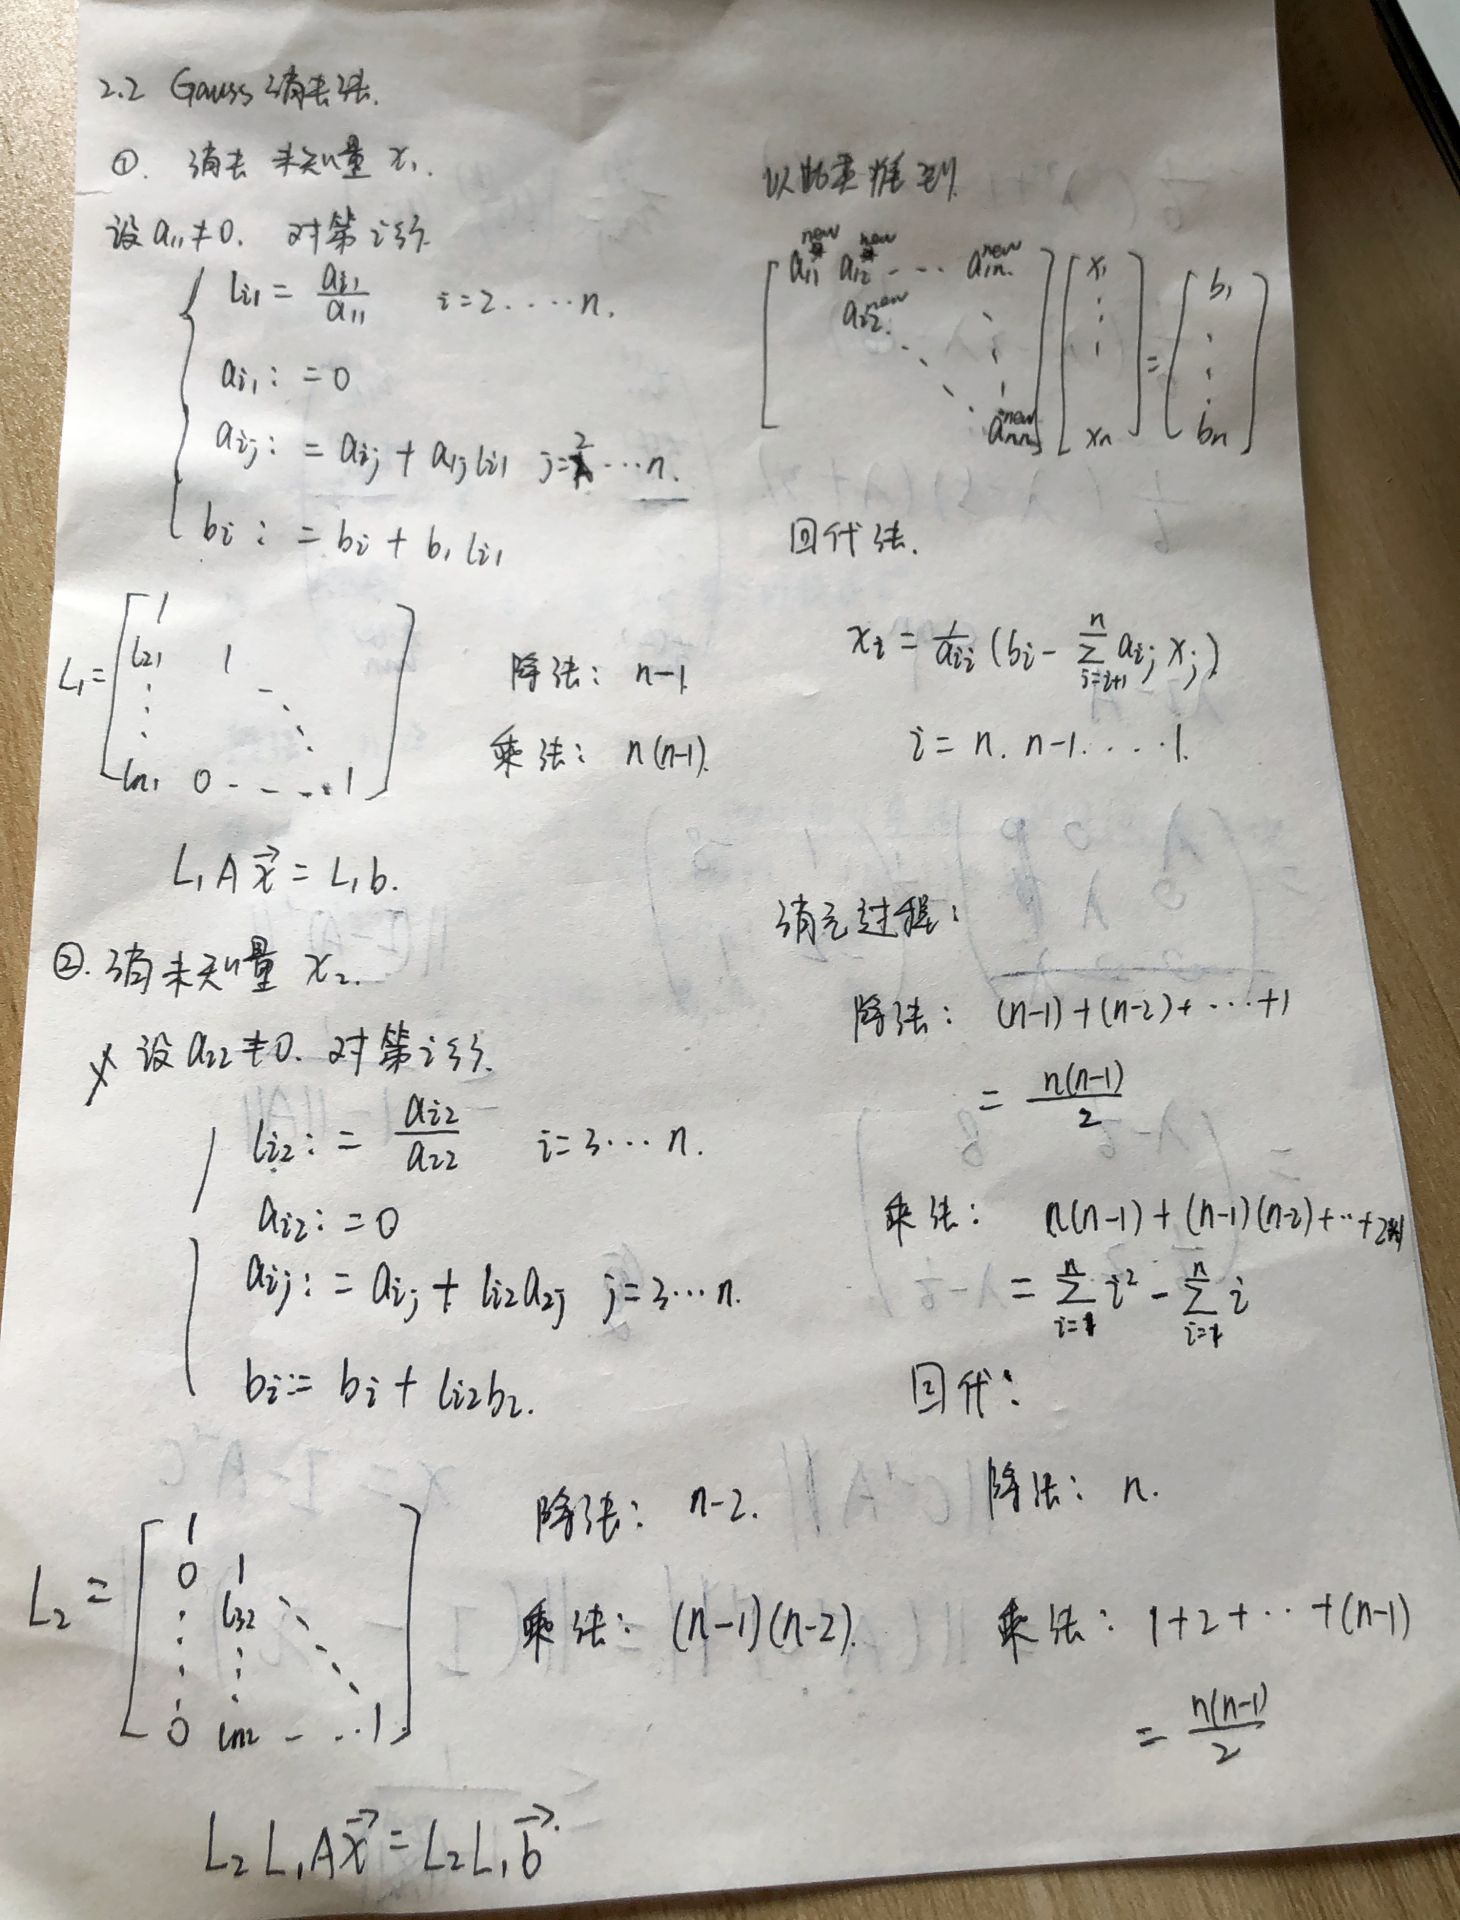 2.2 Gauss 消去法.
①. 消去 未知量 x₁.
设 a₁₁≠0. 对第 i 行.
lᵢ₁ = aᵢ₁/a₁₁  i=2....n.
aᵢ₁ := 0
aᵢⱼ := aᵢⱼ + a₁ⱼ lᵢ₁  j=2...n.
bᵢ := bᵢ + b₁ lᵢ₁
L₁ = [1; l₂₁ 1; ⋮ ⋱; lₙ₁ 0 .... 1]
除法: n-1.
乘法: n(n-1).
L₁A x⃗ = L₁b.
②. 消未知量 x₂.
设 a₂₂≠0. 对第 i 行.
lᵢ₂ := aᵢ₂/a₂₂  i=3...n.
aᵢ₂ := 0
aᵢⱼ := aᵢⱼ + lᵢ₂a₂ⱼ  j=3...n.
bᵢ := bᵢ + lᵢ₂b₂.
L₂ = [1; 0 1; ⋮ l₃₂ ⋱; ⋮ ⋮ ⋱; 0 lₙ₂ ... 1]
除法: n-2.
乘法: (n-1)(n-2).
L₂L₁A x⃗ = L₂L₁ b⃗.
以此类推到
[a₁₁ⁿᵉʷ a₁₂ⁿᵉʷ ... a₁ₙⁿᵉʷ; a₂₂ⁿᵉʷ ⋮; ⋱ ⋮; aₙₙⁿᵉʷ] [x₁; ⋮; xₙ] = [b₁; ⋮; bₙ]
回代法.
xᵢ = 1/aᵢᵢ (bᵢ - ∑_{j=i+1}^{n} aᵢⱼ xⱼ)
i = n. n-1. ... 1.
消元过程:
除法: (n-1)+(n-2)+...+1
= n(n-1)/2
乘法: n(n-1)+(n-1)(n-2)+...+2×1
= ∑_{i=1}^{n} i² - ∑_{i=1}^{n} i
回代:
除法: n.
乘法: 1+2+...+(n-1)
= n(n-1)/2